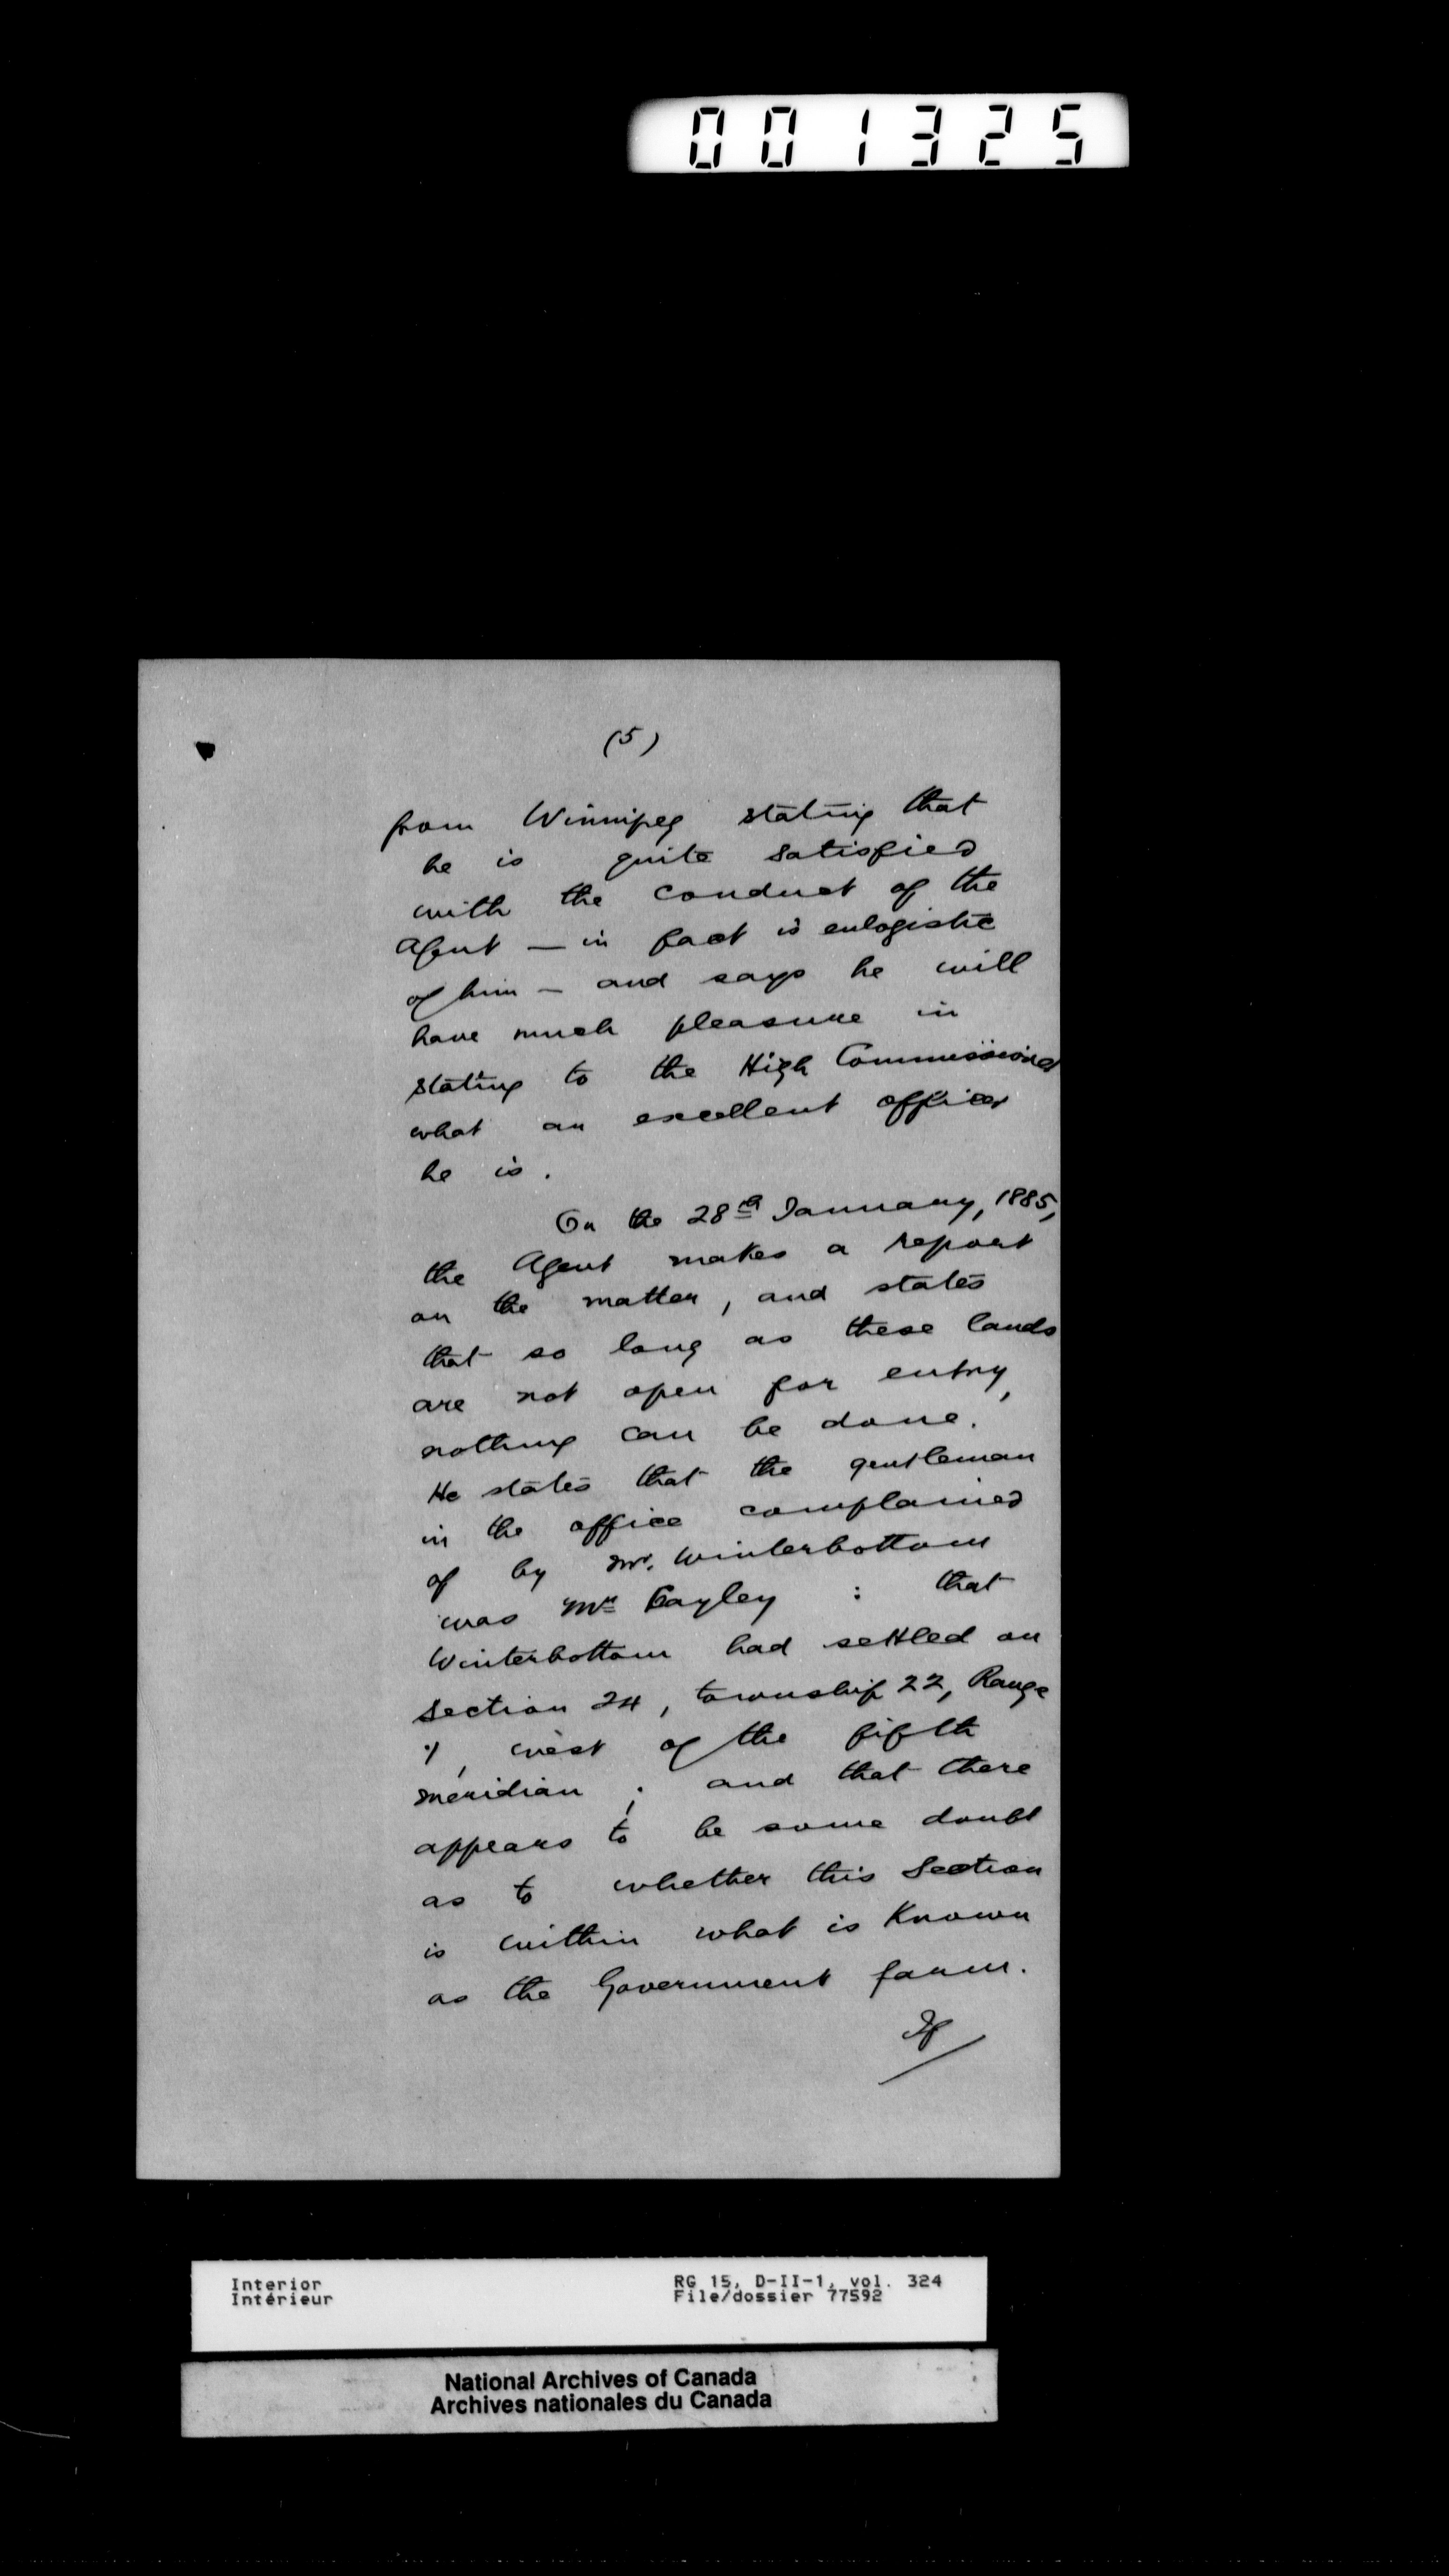 001325
(5)
from Winnipeg stating that
he is quite satisfied
with the conduct of the
Agent — in fact is eulogistic
of him — and says he will
have much pleasure in
stating to the High Commissioner
what an excellent officer
he is.
On the 28th January, 1885,
the Agent makes a report
on the matter, and states
that so long as these lands
are not open for entry,
nothing can be done.
He states that the gentleman
in the office complained
of by Mr. Winterbottom
was Mr Cayley : that
Winterbottom had settled on
Section 24, township 22, Range
1, west of the fifth
meridian ; and that there
appears to be some doubt
as to whether this Section
is within what is Known
as the Government farm.
If
Interior
Intérieur
RG 15, D-II-1, vol. 324
File/dossier 77592
National Archives of Canada
Archives nationales du Canada